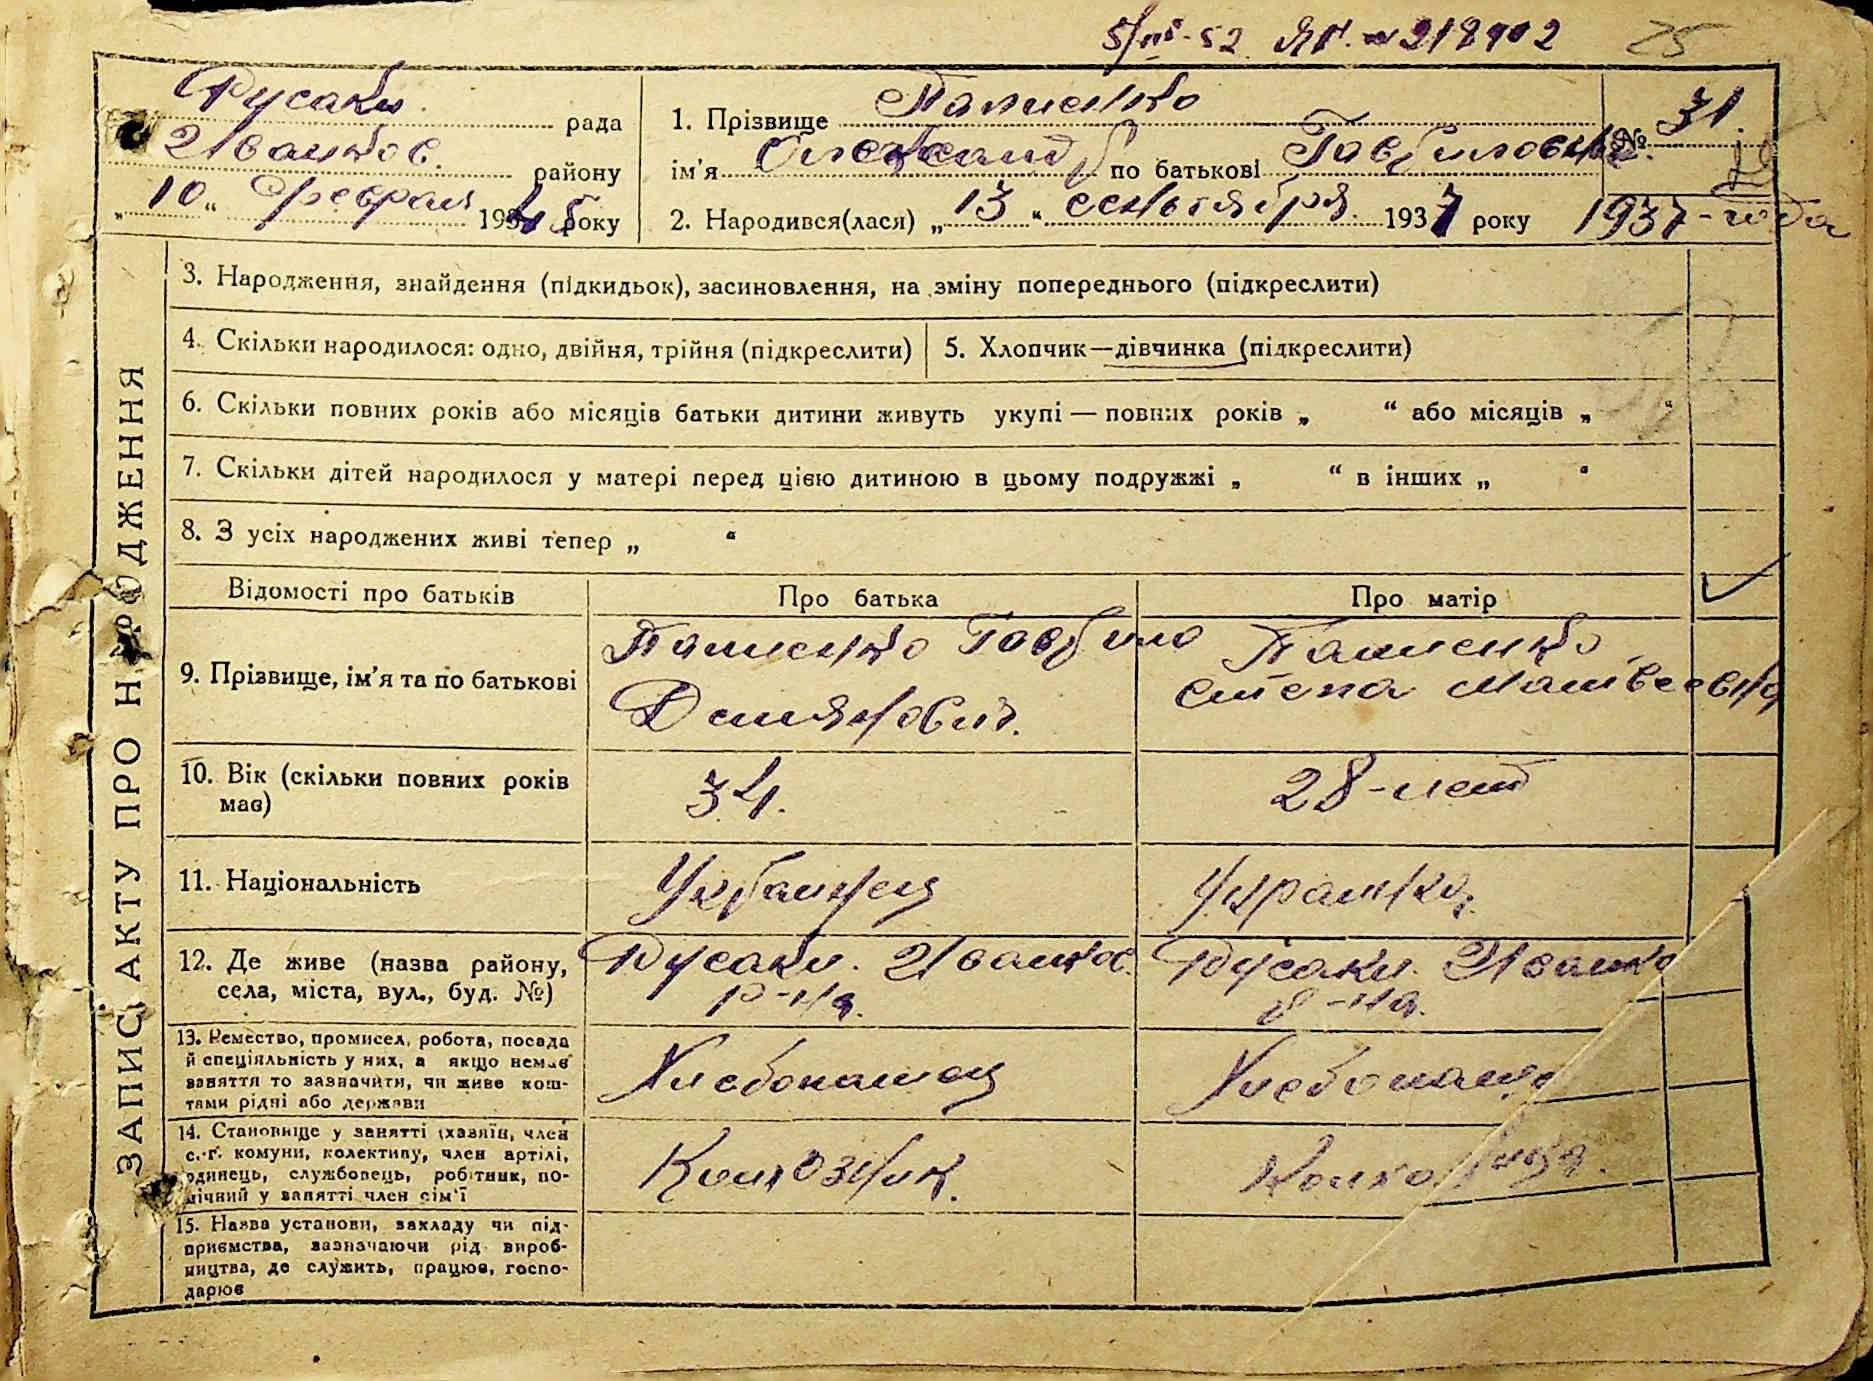 5/III-52 ЯП. № 218902 25
Русаки рада
Іванков. району
„10“ февраля 1945 року
1. Прізвище Пашенко
ім'я Олександр по батькові Гавриловна
2. Народився(лася) „13“ сентября 1937 року
№ 31.
1937-года
ЗАПИС АКТУ ПРО НАРОДЖЕННЯ
3. Народження, знайдення (підкидьок), засиновлення, на зміну попереднього (підкреслити)
4. Скільки народилося: одно, двійня, трійня (підкреслити) 5. Хлопчик—дівчинка (підкреслити)
6. Скільки повних років або місяців батьки дитини живуть укупі — повних років „ “ або місяців „ “
7. Скільки дітей народилося у матері перед цією дитиною в цьому подружжі „ “ в інших „ “
8. З усіх народжених живі тепер „ “
Відомості про батьків Про батька Про матір
9. Прізвище, ім'я та по батькові
Пашенко Гаврило
Демянович.
Пашенко
Степа Матвеевна
10. Вік (скільки повних років
має)
34.
28-лет
11. Національність Украинец Украинка.
12. Де живе (назва району,
села, міста, вул., буд. №)
Русаки. Иванков.
р-на.
Русаки. Иванко
р-на.
13. Ремество, промисел, робота, посада
й спеціяльність у них, а якщо немає
заняття то зазначити, чи живе кош-
тами рідні або держави
Хлебопашец
Хлебопаше
14. Становище у занятті (хазяїн, член
с.-г. комуни, колективу, член артілі,
одинець, службовець, робітник, по-
мічний у занятті член сім'ї
Колхозник.
Колхозница.
15. Назва установи, закладу чи під-
приємства, зазначаючи рід вироб-
ництва, де служить, працює, госпо-
дарює